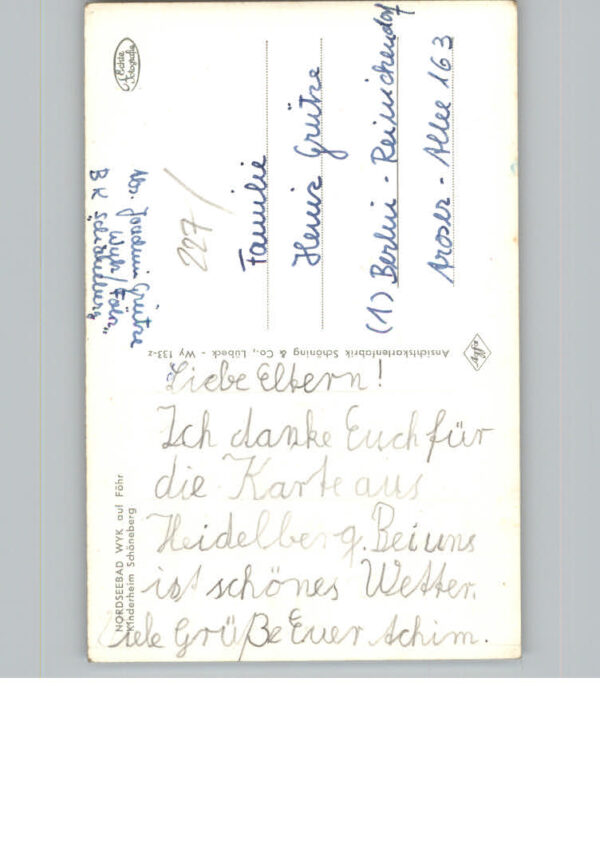 Liebe Eltern!
Ich danke Euch für
die Karte aus
Heidelberg. Bei uns
ist schönes Wetter.
Viele Grüße Euer Achim.
NORDSEEBAD WYK auf Föhr
Kinderheim Schöneberg
Ansichtskartenfabrik Schöning & Co., Lübeck - Wy 133-z
Echte
Fotografie
Abs. Joachim Grütze
Wyk/Föhr
BK Schöneberg
227/
Familie
Heinz Grütze
(1) Berlin - Reinickendorf
Aroser - Allee 163